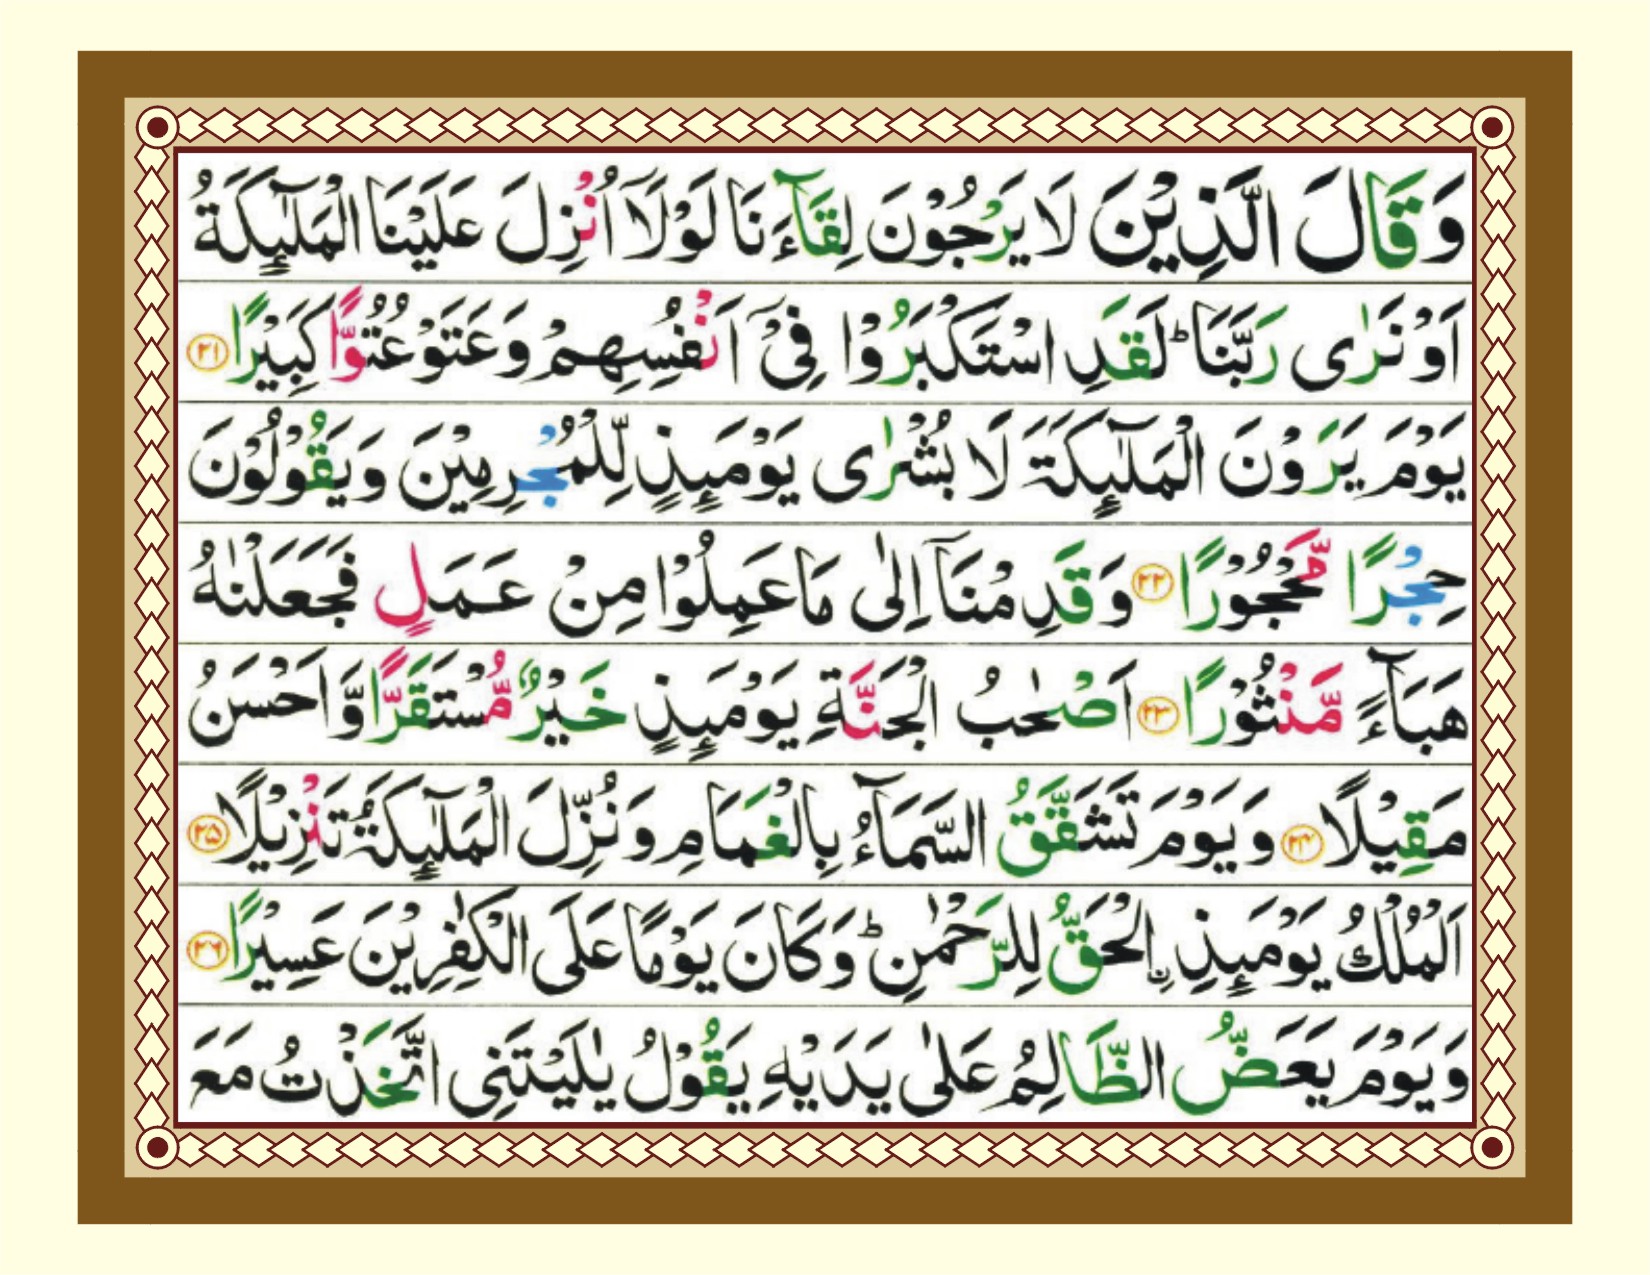 وَقَالَ الَّذِيْنَ لَا يَرْجُوْنَ لِقَآءَنَا لَوْلَاۤ اُنْزِلَ عَلَيْنَا الْمَلٰٓئِكَةُ
اَوْ نَرٰى رَبَّنَا ؕ لَقَدِ اسْتَكْبَرُوْا فِيْۤ اَنْفُسِهِمْ وَعَتَوْ عُتُوًّا كَبِيْرًا ۝۲۱
يَوْمَ يَرَوْنَ الْمَلٰٓئِكَةَ لَا بُشْرٰى يَوْمَئِذٍ لِّلْمُجْرِمِيْنَ وَيَقُوْلُوْنَ
حِجْرًا مَّحْجُوْرًا ۝۲۲ وَقَدِمْنَاۤ اِلٰى مَا عَمِلُوْا مِنْ عَمَلٍ فَجَعَلْنٰهُ
هَبَآءً مَّنْثُوْرًا ۝۲۳ اَصْحٰبُ الْجَنَّةِ يَوْمَئِذٍ خَيْرٌ مُّسْتَقَرًّا وَّاَحْسَنُ
مَقِيْلًا ۝۲۴ وَيَوْمَ تَشَقَّقُ السَّمَآءُ بِالْغَمَامِ وَنُزِّلَ الْمَلٰٓئِكَةُ تَنْزِيْلًا ۝۲۵
اَلْمُلْكُ يَوْمَئِذِ ِۨالْحَقُّ لِلرَّحْمٰنِ ؕ وَكَانَ يَوْمًا عَلَى الْكٰفِرِيْنَ عَسِيْرًا ۝۲۶
وَيَوْمَ يَعَضُّ الظَّالِمُ عَلٰى يَدَيْهِ يَقُوْلُ يٰلَيْتَنِى اتَّخَذْتُ مَعَ